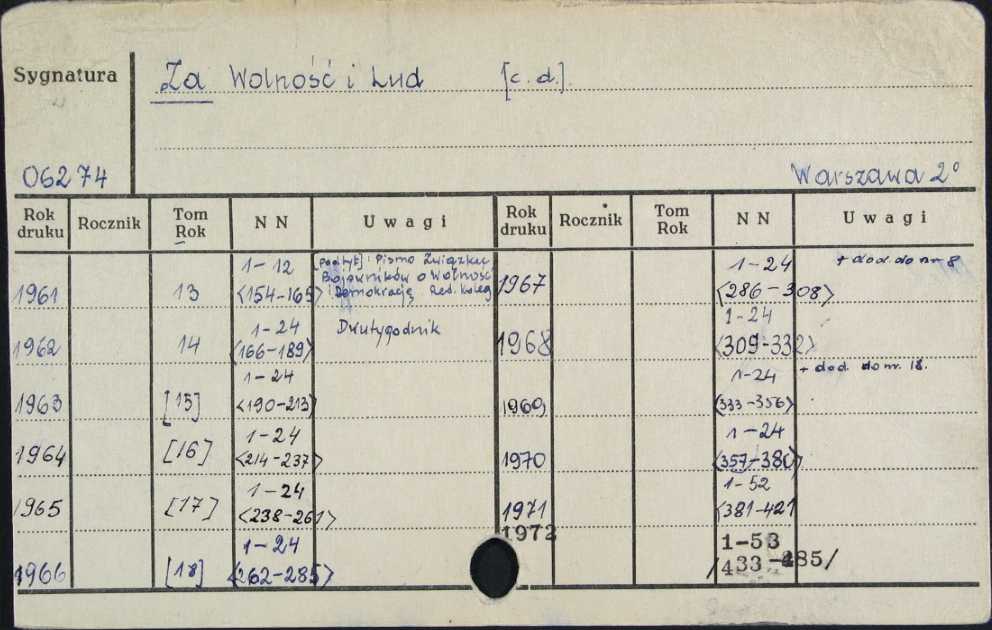 Sygnatura
Za Wolność i Lud [c.d.].
06274
Warszawa 2°
Rok druku Rocznik Tom Rok NN Uwagi Rok druku Rocznik Tom Rok NN Uwagi
1961 13 1-12 <154-165> [podtyt]: Pismo Związku Bojowników o Wolność i Demokrację. Red. Koleg
1962 14 1-24 <166-189> Dwutygodnik
1963 [15] 1-24 <190-213>
1964 [16] 1-24 <214-237>
1965 [17] 1-24 <238-261>
1966 [18] 1-24 <262-285>
1967 1-24 <286-308> + dod. do nr 8
1968 1-24 <309-332>
1969 1-24 <333-356> + dod. do nr. 18.
1970 1-24 <357-380>
1971 1-52 <381-421
1972 1-53 /433-485/